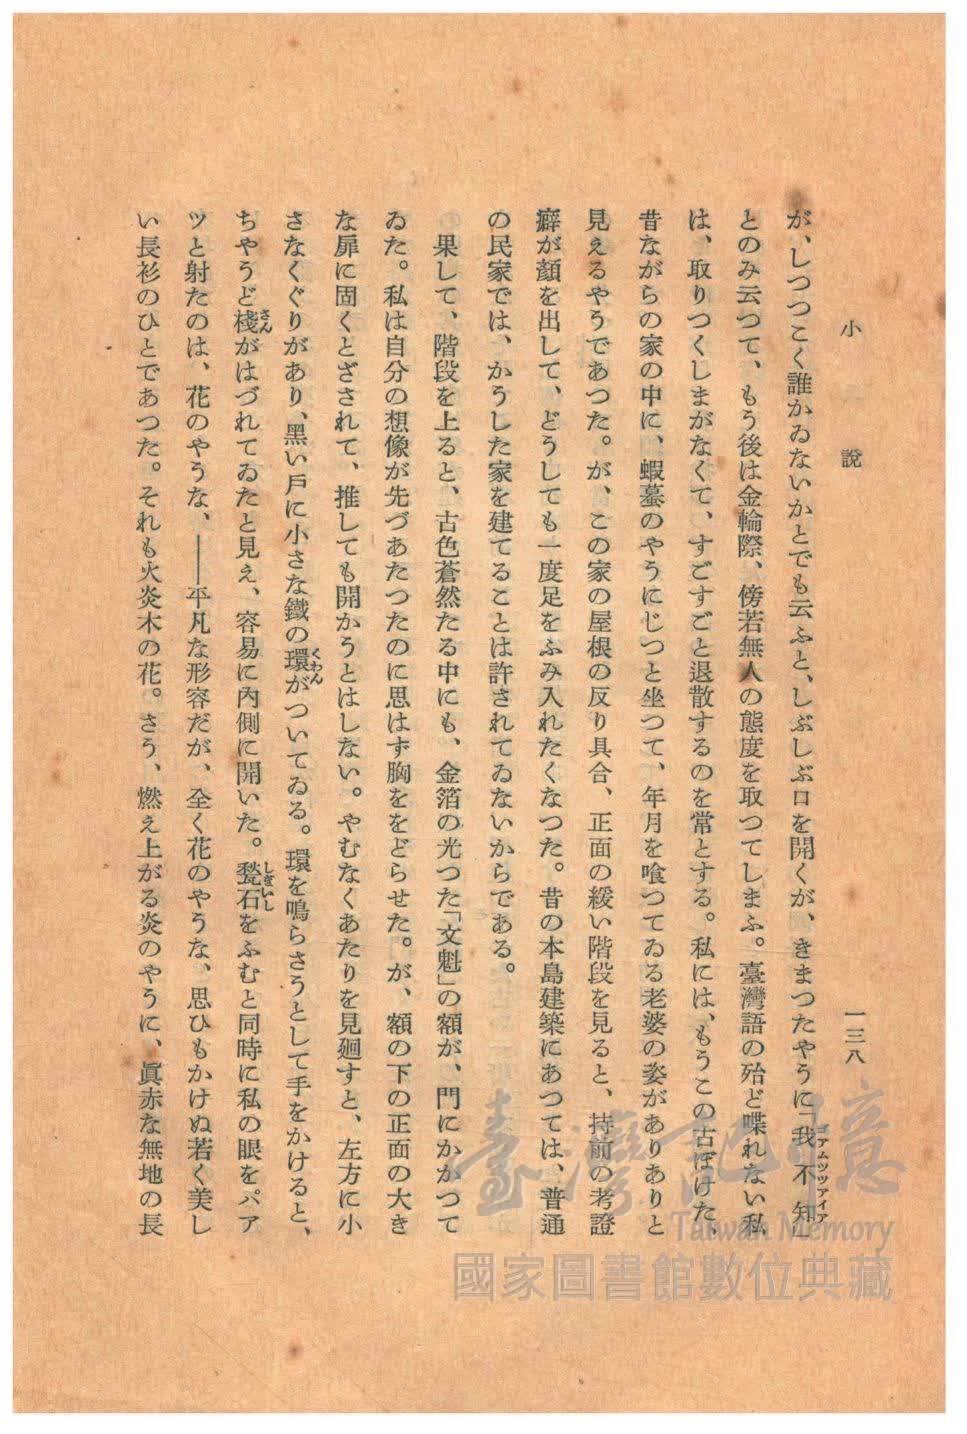 小說
一三八
が、しつつこく誰かゐないかとでも云ふと、しぶしぶ口を開くが、きまつたやうに「我不知」
ゴアムツツアイア
とのみ云つて、もう後は金輪際、傍若無人の態度を取つてしまふ。臺灣語の殆ど喋れない私
は、取りつくしまがなくて、すごすごと退散するのを常とする。私には、もうこの古ぼけた、
昔ながらの家の中に、蝦蟇のやうにじつと坐つて、年月を喰つてゐる老婆の姿がありありと
見えるやうであつた。が、この家の屋根の反り具合、正面の緩い階段を見ると、持前の考證
癖が顏を出して、どうしても一度足をふみ入れたくなつた。昔の本島建築にあつては、普通
の民家では、かうした家を建てることは許されてゐないからである。
果して、階段を上ると、古色蒼然たる中にも、金箔の光つた「文魁」の額が、門にかかつて
ゐた。私は自分の想像が先づあたつたのに思はず胸ををどらせた。が、額の下の正面の大き
な扉に固くとざされて、推しても開かうとはしない。やむなくあたりを見廻すと、左方に小
さなくぐりがあり、黑い戶に小さな鐵の環がついてゐる。環を鳴らさうとして手をかけると、
くわん
ちやうど棧がはづれてゐたと見え、容易に內側に開いた。甃石をふむと同時に私の眼をパア
さん
しきいし
ツと射たのは、花のやうな、――平凡な形容だが、全く花のやうな、思ひもかけぬ若く美し
い長衫のひとであつた。それも火炎木の花。さう、燃え上がる炎のやうに、眞赤な無地の長
臺灣記憶
Taiwan Memory
國家圖書館數位典藏